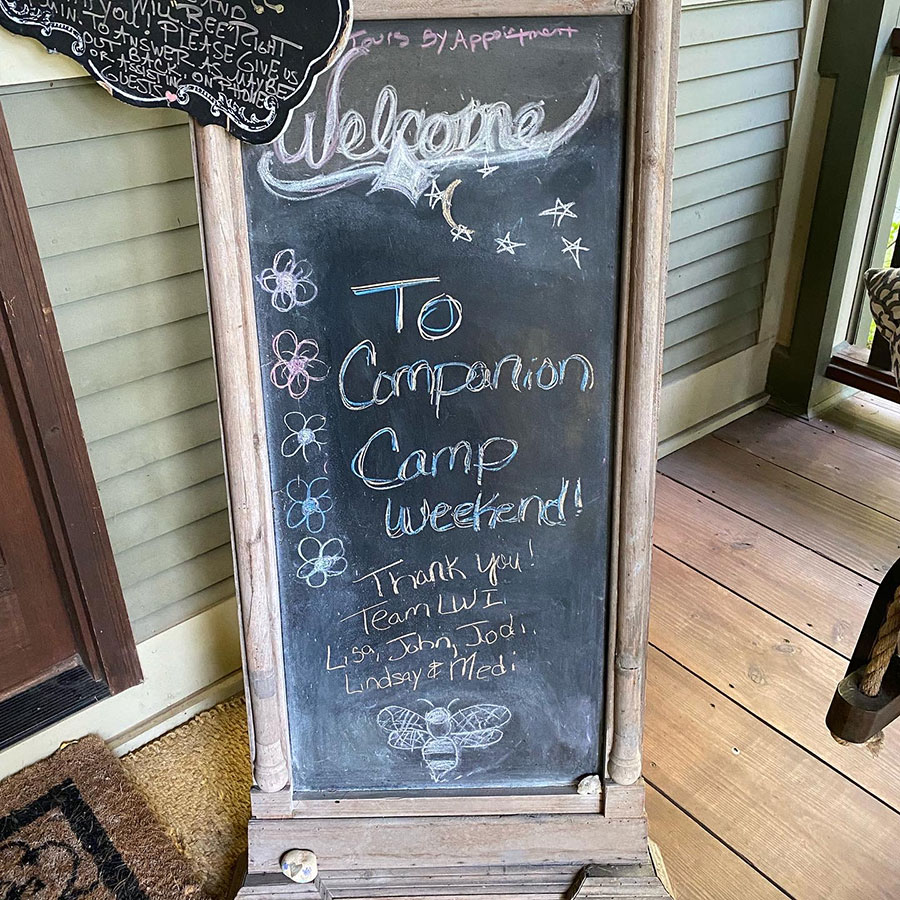 AND
YOU! WILL BEE RIGHT
PLEASE GIVE US
TO ANSWER
BACK AS MAYBE
OR ASSISTING ON PHONES
GUESTS
Tours By Appointment
Welcome
To
Companion
Camp
Weekend!
Thank you!
Team LWI
Lisa, John, Jodi,
Lindsay & Medi